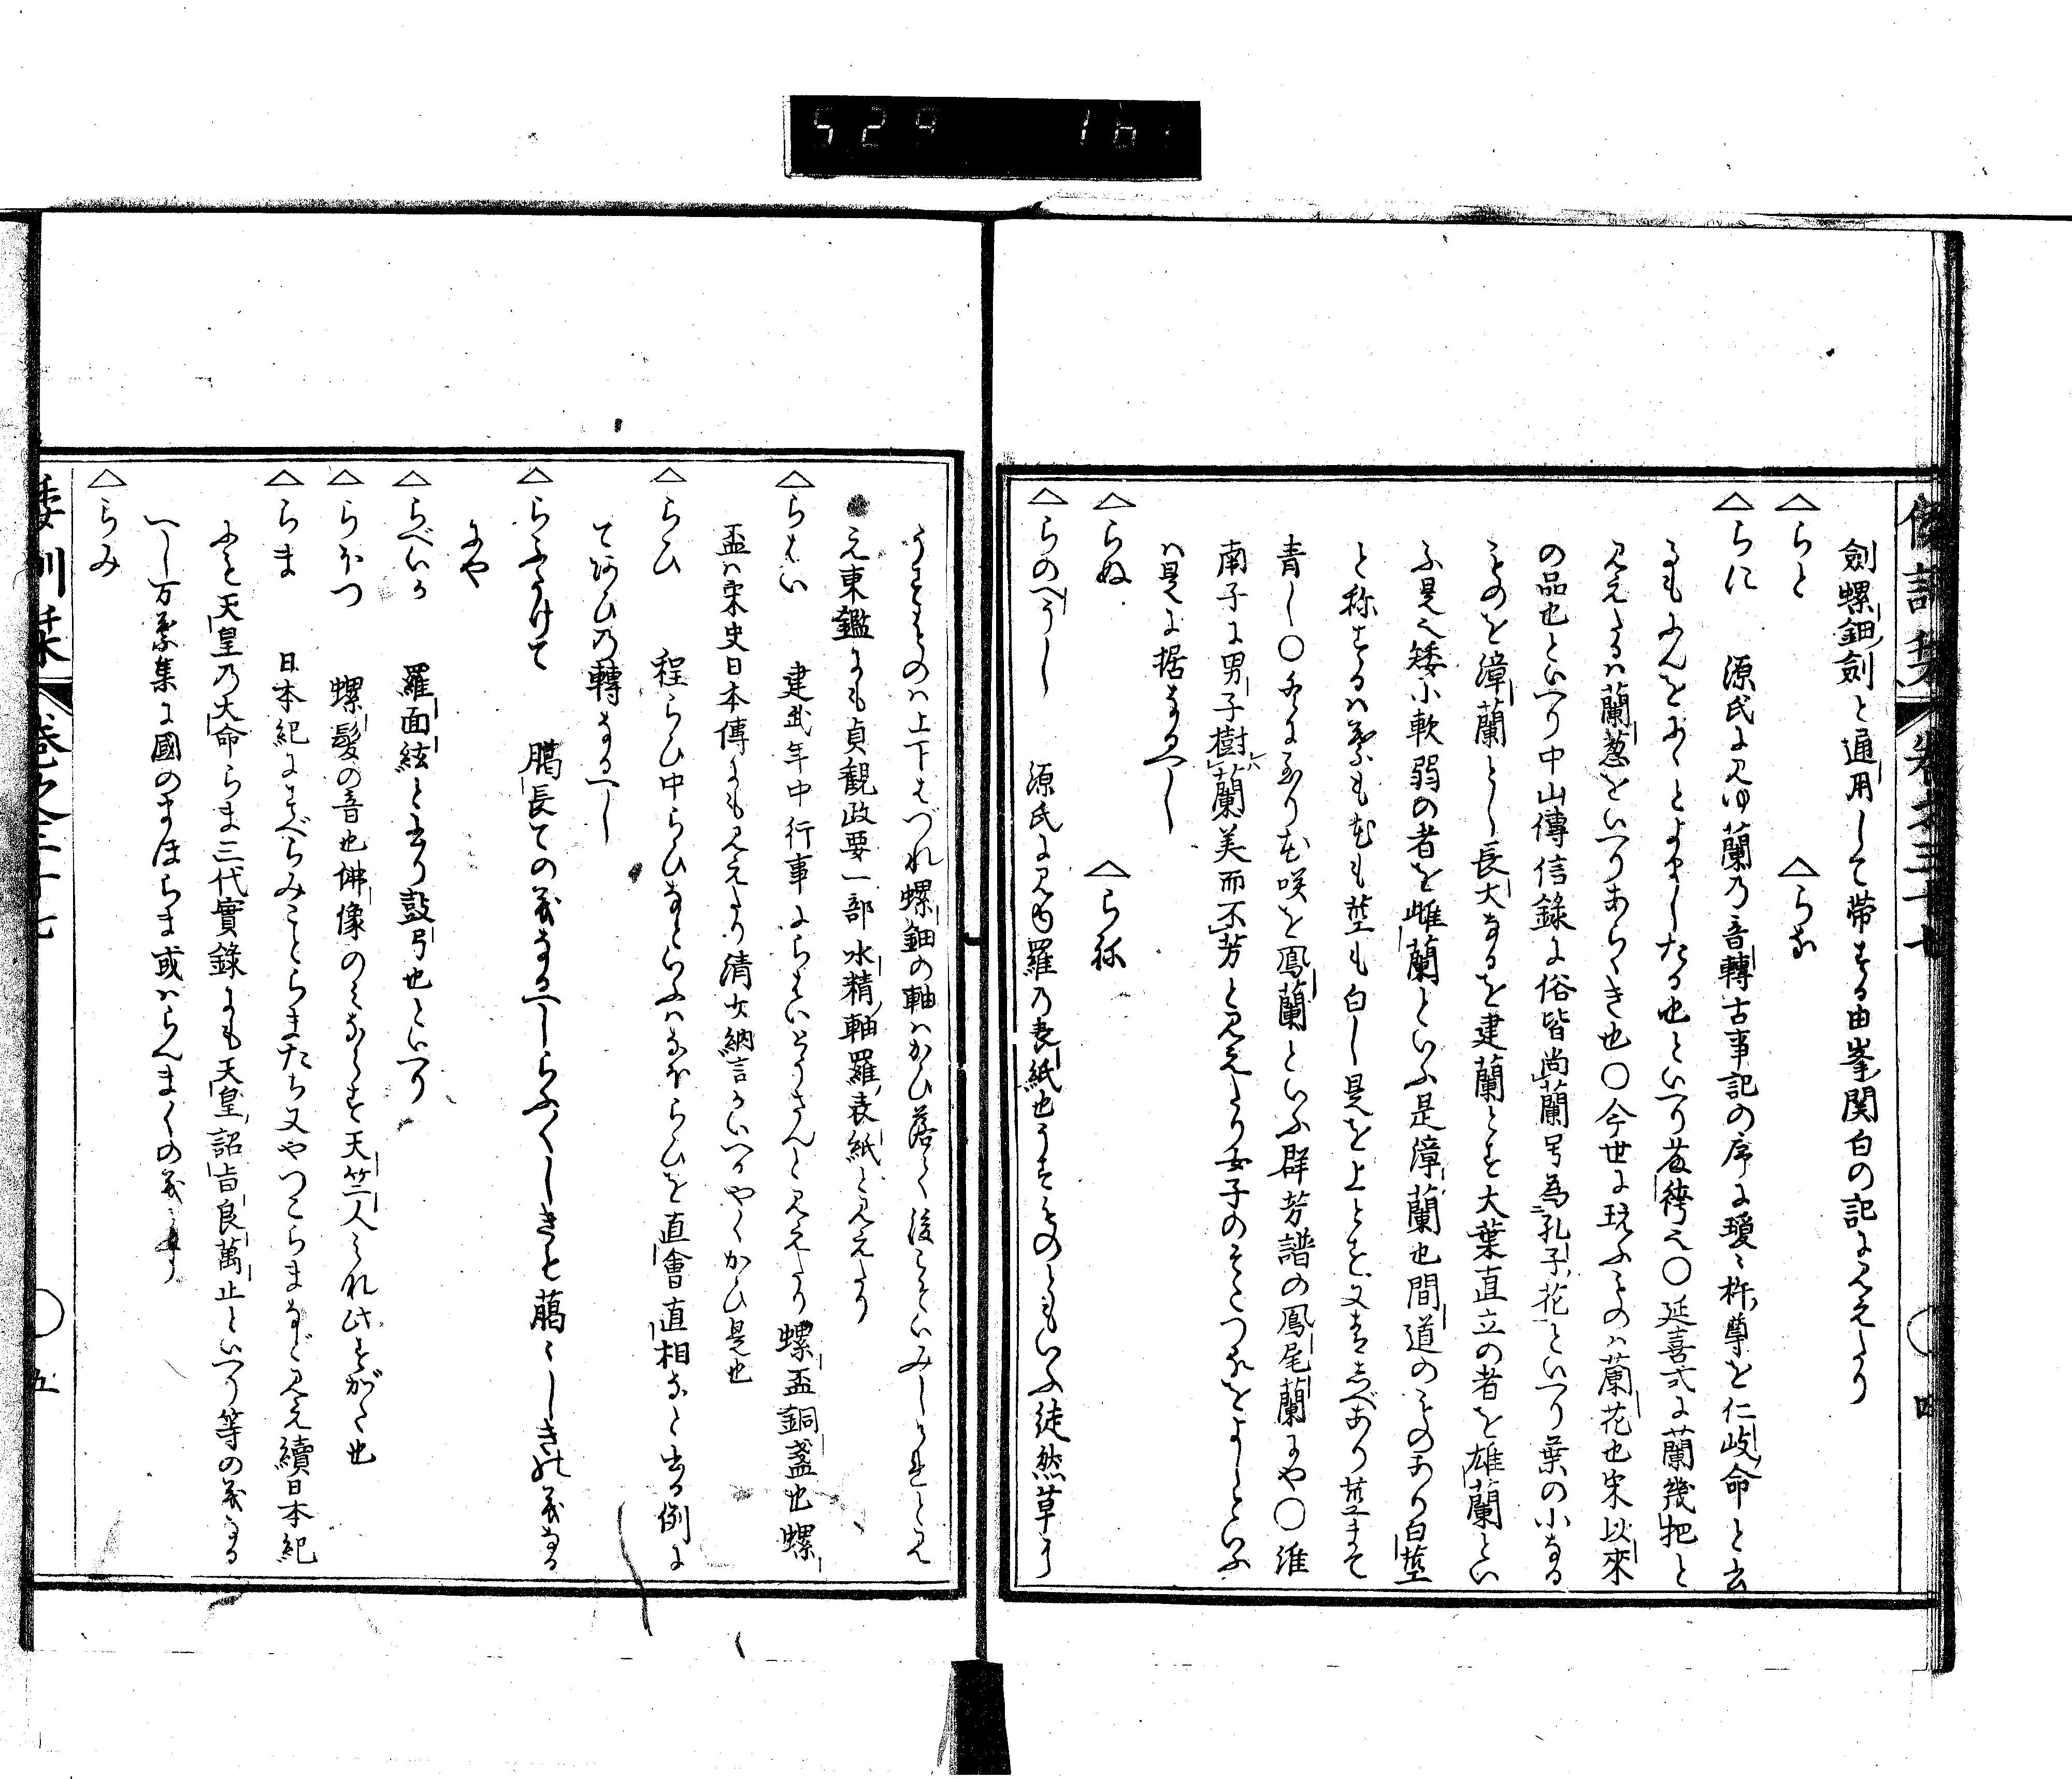 529 16
倭訓栞 巻之三十七 四
劍螺鈿劍と通用して帯する由峯関白の記に見えたり
△らと △らな
△らに 源氏に見ゆ蘭の音轉古事記の序に瓊々杵尊を仁岐命と云
るもにんをにゝとよみしたる也といへり 延喜式に蘭幾把と
見えたるハ蘭葱をいへりあらゝき也○今世に玩ふものハ蘭花也宋以來
の品也といへり中山傳信録に俗皆尚蘭号為孔子花といへり葉の小なる
ものを漳蘭とし長大なるを建蘭とす大葉直立の者を雄蘭とい
ふ是也矮小軟弱の者を雌蘭といふ是漳蘭也間道のものあり白莖
と称するハ葉も花も莖も白し是を上とす又青しべあり莖まて
青し○冬に至り花咲を鳳蘭といふ群芳譜の鳳尾蘭にや○淮
南子に男子樹蘭美而不芳と見えたり女子のそこつなをよしといふ
ハ是に据なるへし
△らぬ △らね
△らのへうし 源氏に見ゆ羅の表紙也うすものともいふ徒然草に
うすものハ上下はづれ螺鈿の軸ハかひ落て後こそいみしけれと見
え東鑑にも貞観政要一部水精軸羅表紙と見えたり
△らはい 建武年中行事にらはいとうさんと見えたり螺盃銅盞也螺
盃ハ宋史日本傳にも見えたり清少納言にいへるやくかひ是也
△らひ 程らひ中らひなといふハなほらひを直會直相なと書る例に
てあひの轉なるへし
△らふうけて 﨟長ての義なるへしらふ〳〵しきも﨟々しきの義なる
にや
△らべいか 羅面絃と書り鼓弓也といへり
△らほつ 螺髪の音也佛像のみならす天竺人みれ此すがた也
△らま 日本紀にすべらみことらまたち又やつこらまなど見え續日本紀
にも天皇の大命らま三代實録にも天皇詔旨良萬止といへり等の義なる
へし万葉集に國のまほらま或ハらんまくの義なり
△らみ
倭訓栞 巻之三十七 五